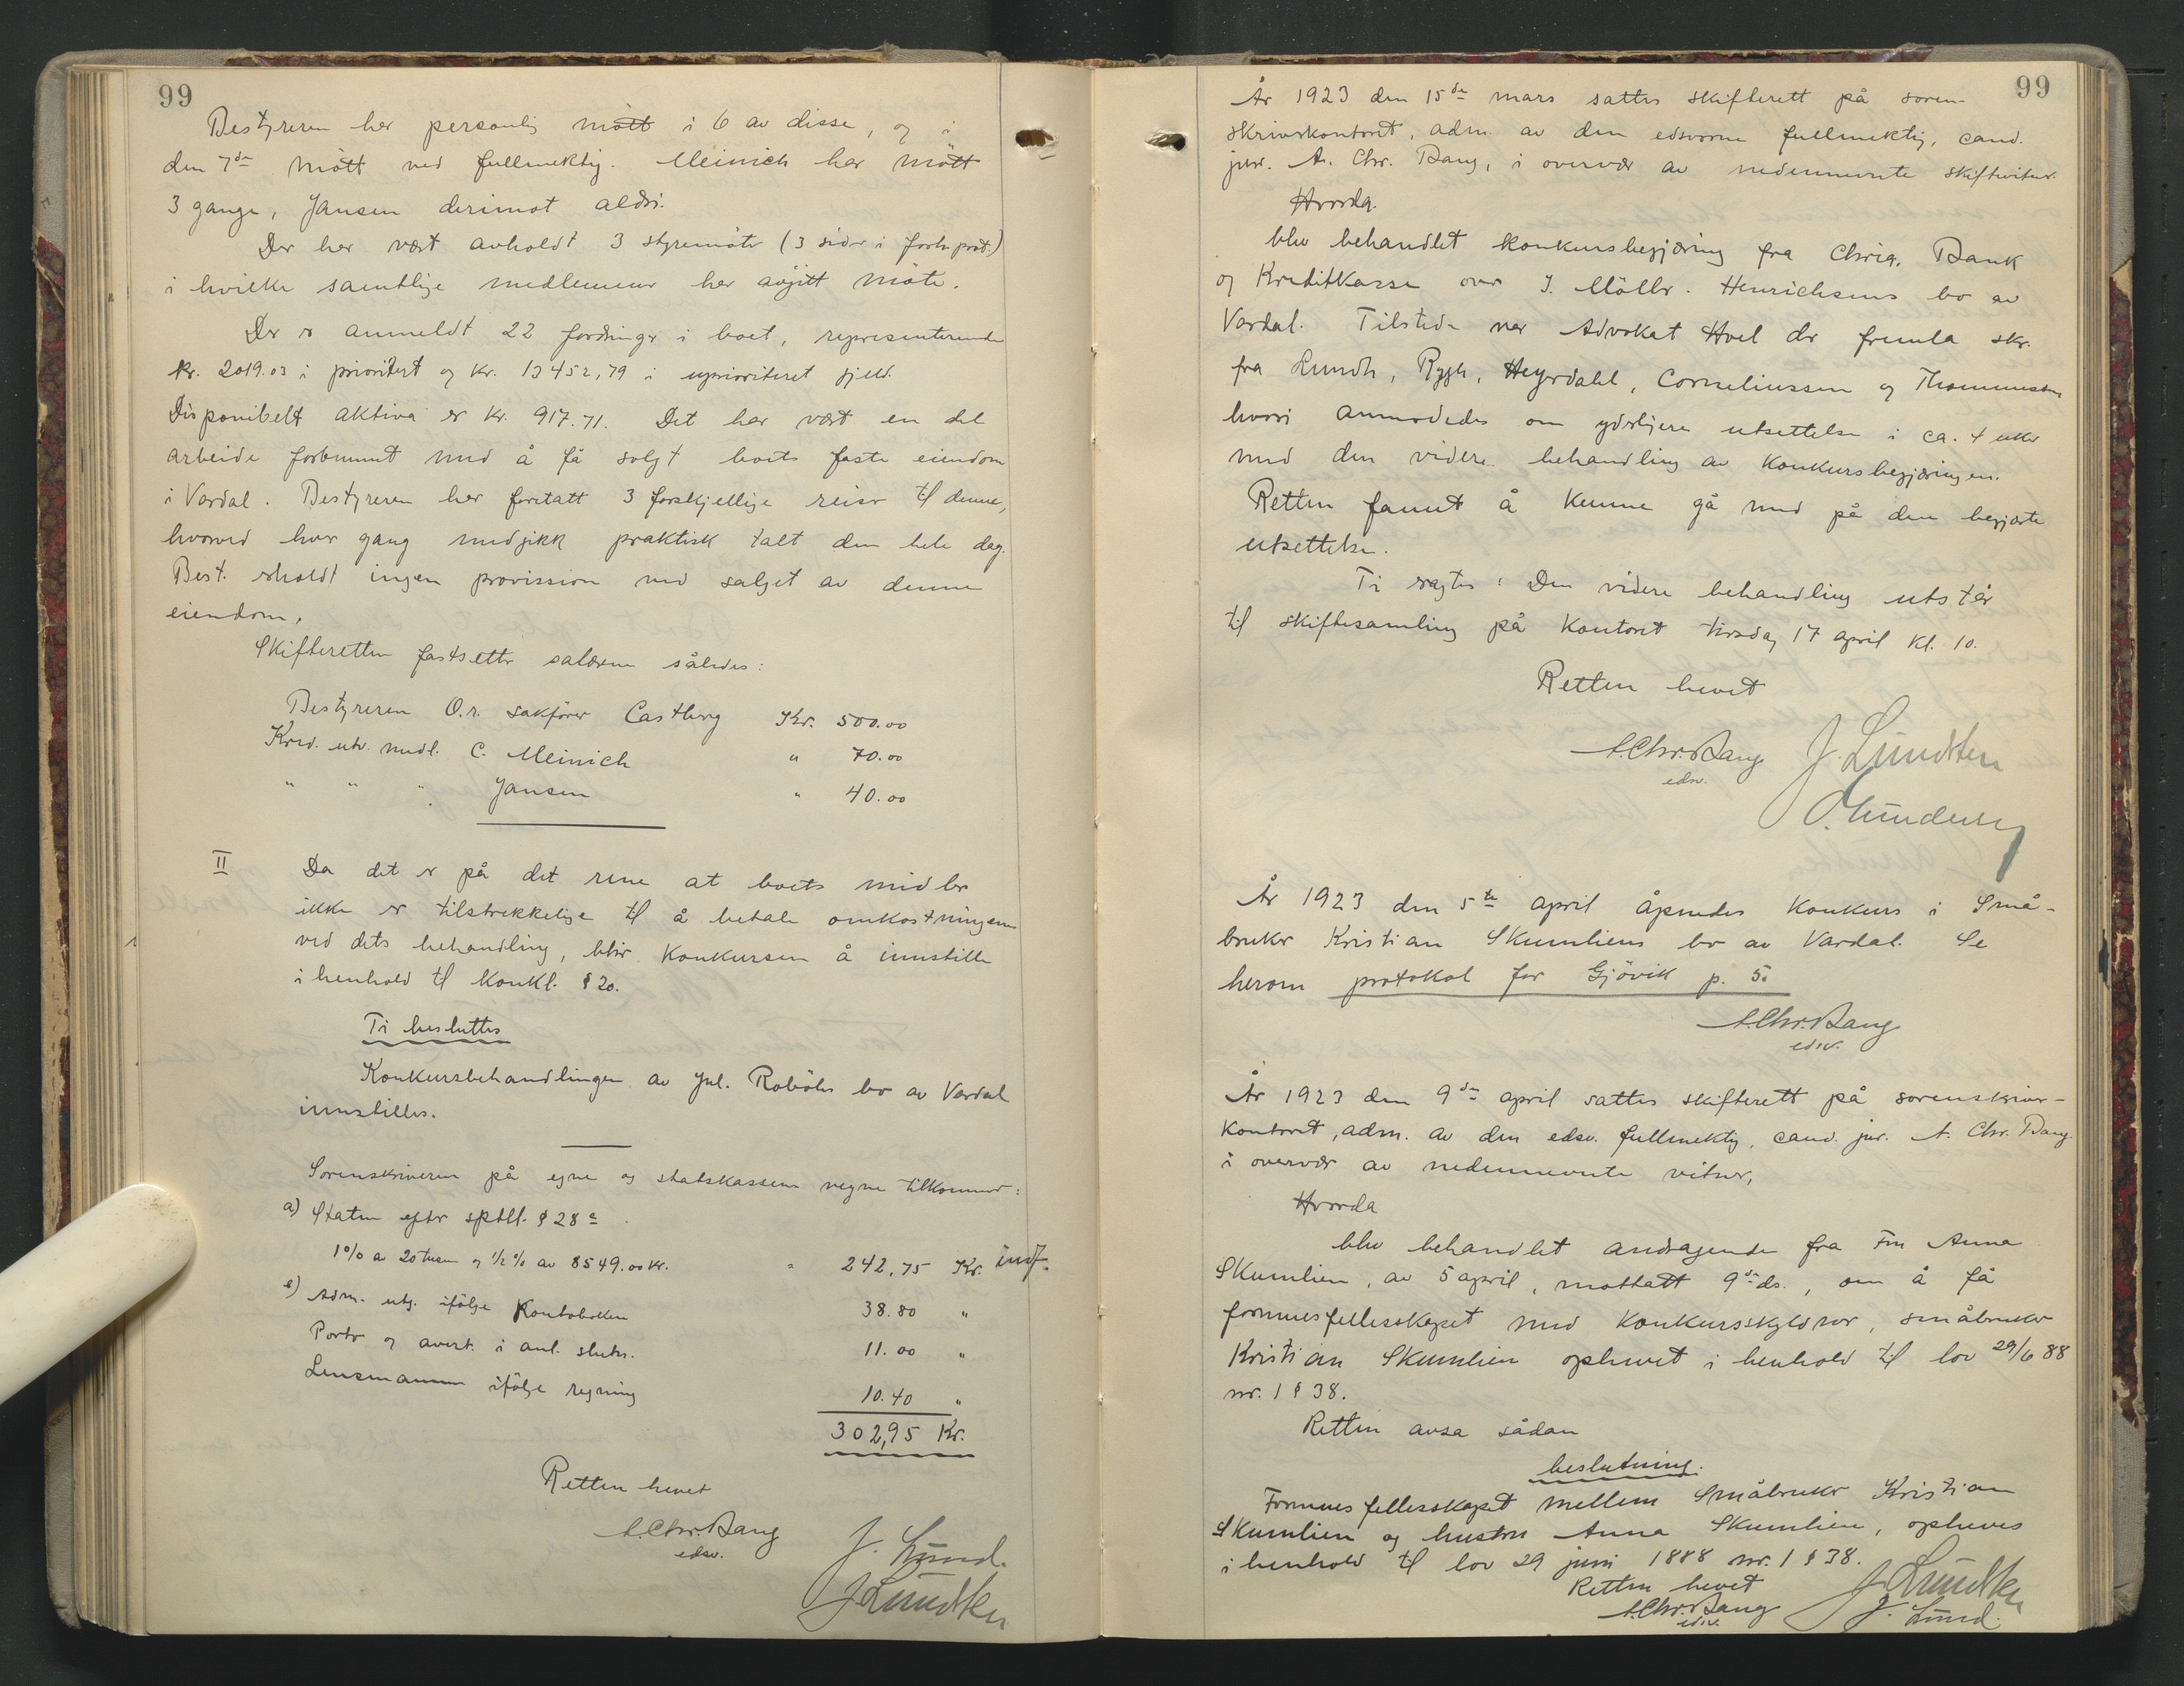 99
Bestyreren har personlig mött i 6 av disse, og i
den 7de mött ved fullmektig. Meinich har mött
3 gange, Jansen derimot aldri.
Der har vært avholdt 3 styremöter (3 sider i forh. prot.)
i hvilke samtlige medlemmer har avgitt möte.
Der er anmeldt 22 fordringer i boet, representerende
kr. 2019.03 i prioritert og kr. 13452,79 i uprioriteret gjeld.
Disponibelt aktiva er kr. 917.71. Det har vært en del
arbeide forbunnet med å få solgt boets faste eiendom
i Vardal. Bestyreren har foretatt 3 forskjellige reiser til denne,
hvorved hver gang medgikk praktisk talt den hele dag.
Best. erholdt ingen provission ved salget av denne
eiendom.
Skifteretten fastsetter salærene således:
Bestyreren O.r. sakförer Castberg Kr. 500.00
Kred. utv. medl. C. Meinich " 70.00
" " " Jansen " 40.00
II Da det er på det rene at boets midler
ikke er tilstrekkelige til å betale omkostningene
ved dets behandling, blir konkursen å innstille
i henhold til konkl. § 20.
Ti besluttes
Konkursbehandlingen av Jul. Roböles bo av Vardal
innstilles.
Sorenskriveren på egne og statskassens vegne tilkommer:
a) Staten efter sptll. § 28 a
1% av 20 tusen og 1/2% av 8549.00 kr. " 242,75 Kr. innf.
e) Adm. utg. ifölge Kontoboken 38.80 "
Porto og avert. i anl. slutn. 11.00 "
Lensmannen ifölge regning 10.40 "
302,95 Kr.
Retten hevet
A. Chr. Bang
edsv.
J. Lund.
J Lundsten
99
År 1923 den 15de mars sattes skifterett på soren-
skriverkontoret, adm. av den edsvorne fullmektig, cand.
jur. A. Chr. Bang, i overvær av nedennevnte skiftevitner.
Hvorda.
blev behandlet konkursbegjæring fra Chria. Bank
og Kreditkasse over J. Möller. Henrichsens bo av
Vardal. Tilstede var Advokat Hoel der fremla skr.
fra Lundh, Rygh, Heyerdahl, Corneliussen og Thommessen
hvori anmodedes om yderligere utsettelse i ca. 4 uker
med den videre behandling av konkursbegjæringen.
Retten fannt å kunne gå med på den begjærte
utsettelse.
Ti sagtes: Den videre behandling utstår
til skiftesamling på kontoret tirsdag 17 april kl. 10.
Retten hevet
A. Chr. Bang
edsv.
J. Lundsten
År 1923 den 5te april åpnedes konkurs i Små-
bruker Kristian Skumliens bo av Vardal. Se
herom protokol for Gjövik p. 5.
A. Chr. Bang
edsv.
År 1923 den 9de april sattes skifterett på sorenskriver-
kontoret, adm. av den edsv. fullmektig, cand. jur. A. Chr. Bang
i overvær av nedennevnte vitner,
Hvorda
blev behandlet andragende fra Fru Anna
Skumlien, av 5 april, mottatt 9de ds., om å få
formuesfellesskapet med konkursskyldner, småbruker
Kristian Skumlien ophevet i henhold til lov 29/6 88
nr. 1 § 38.
Retten avsa sådan
beslutning.
Formuesfellesskapet mellem Småbruker Kristian
Skumlien og hustru Anna Skumlien, opheves
i henhold til lov 29 juni 1888 nr. 1 § 38.
Retten hevet
A. Chr. Bang
edsv.
J. Lundsten
J. Lund.